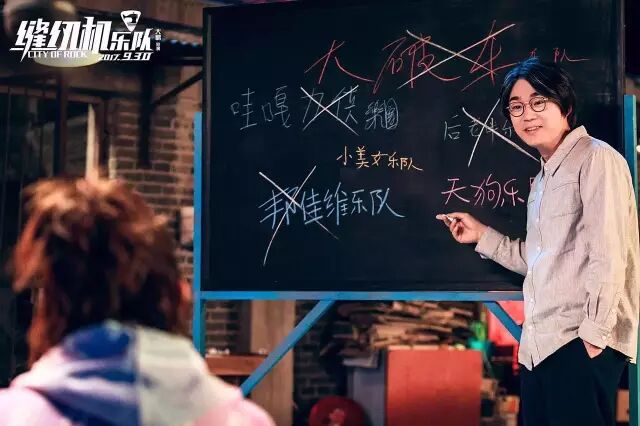 缝纫机乐队
CITY OF ROCK
2017.9.30
大鹏 导演
大破车乐队
哇嘎力侠乐团
后老
小美女乐队
天狗乐队
佳维乐队